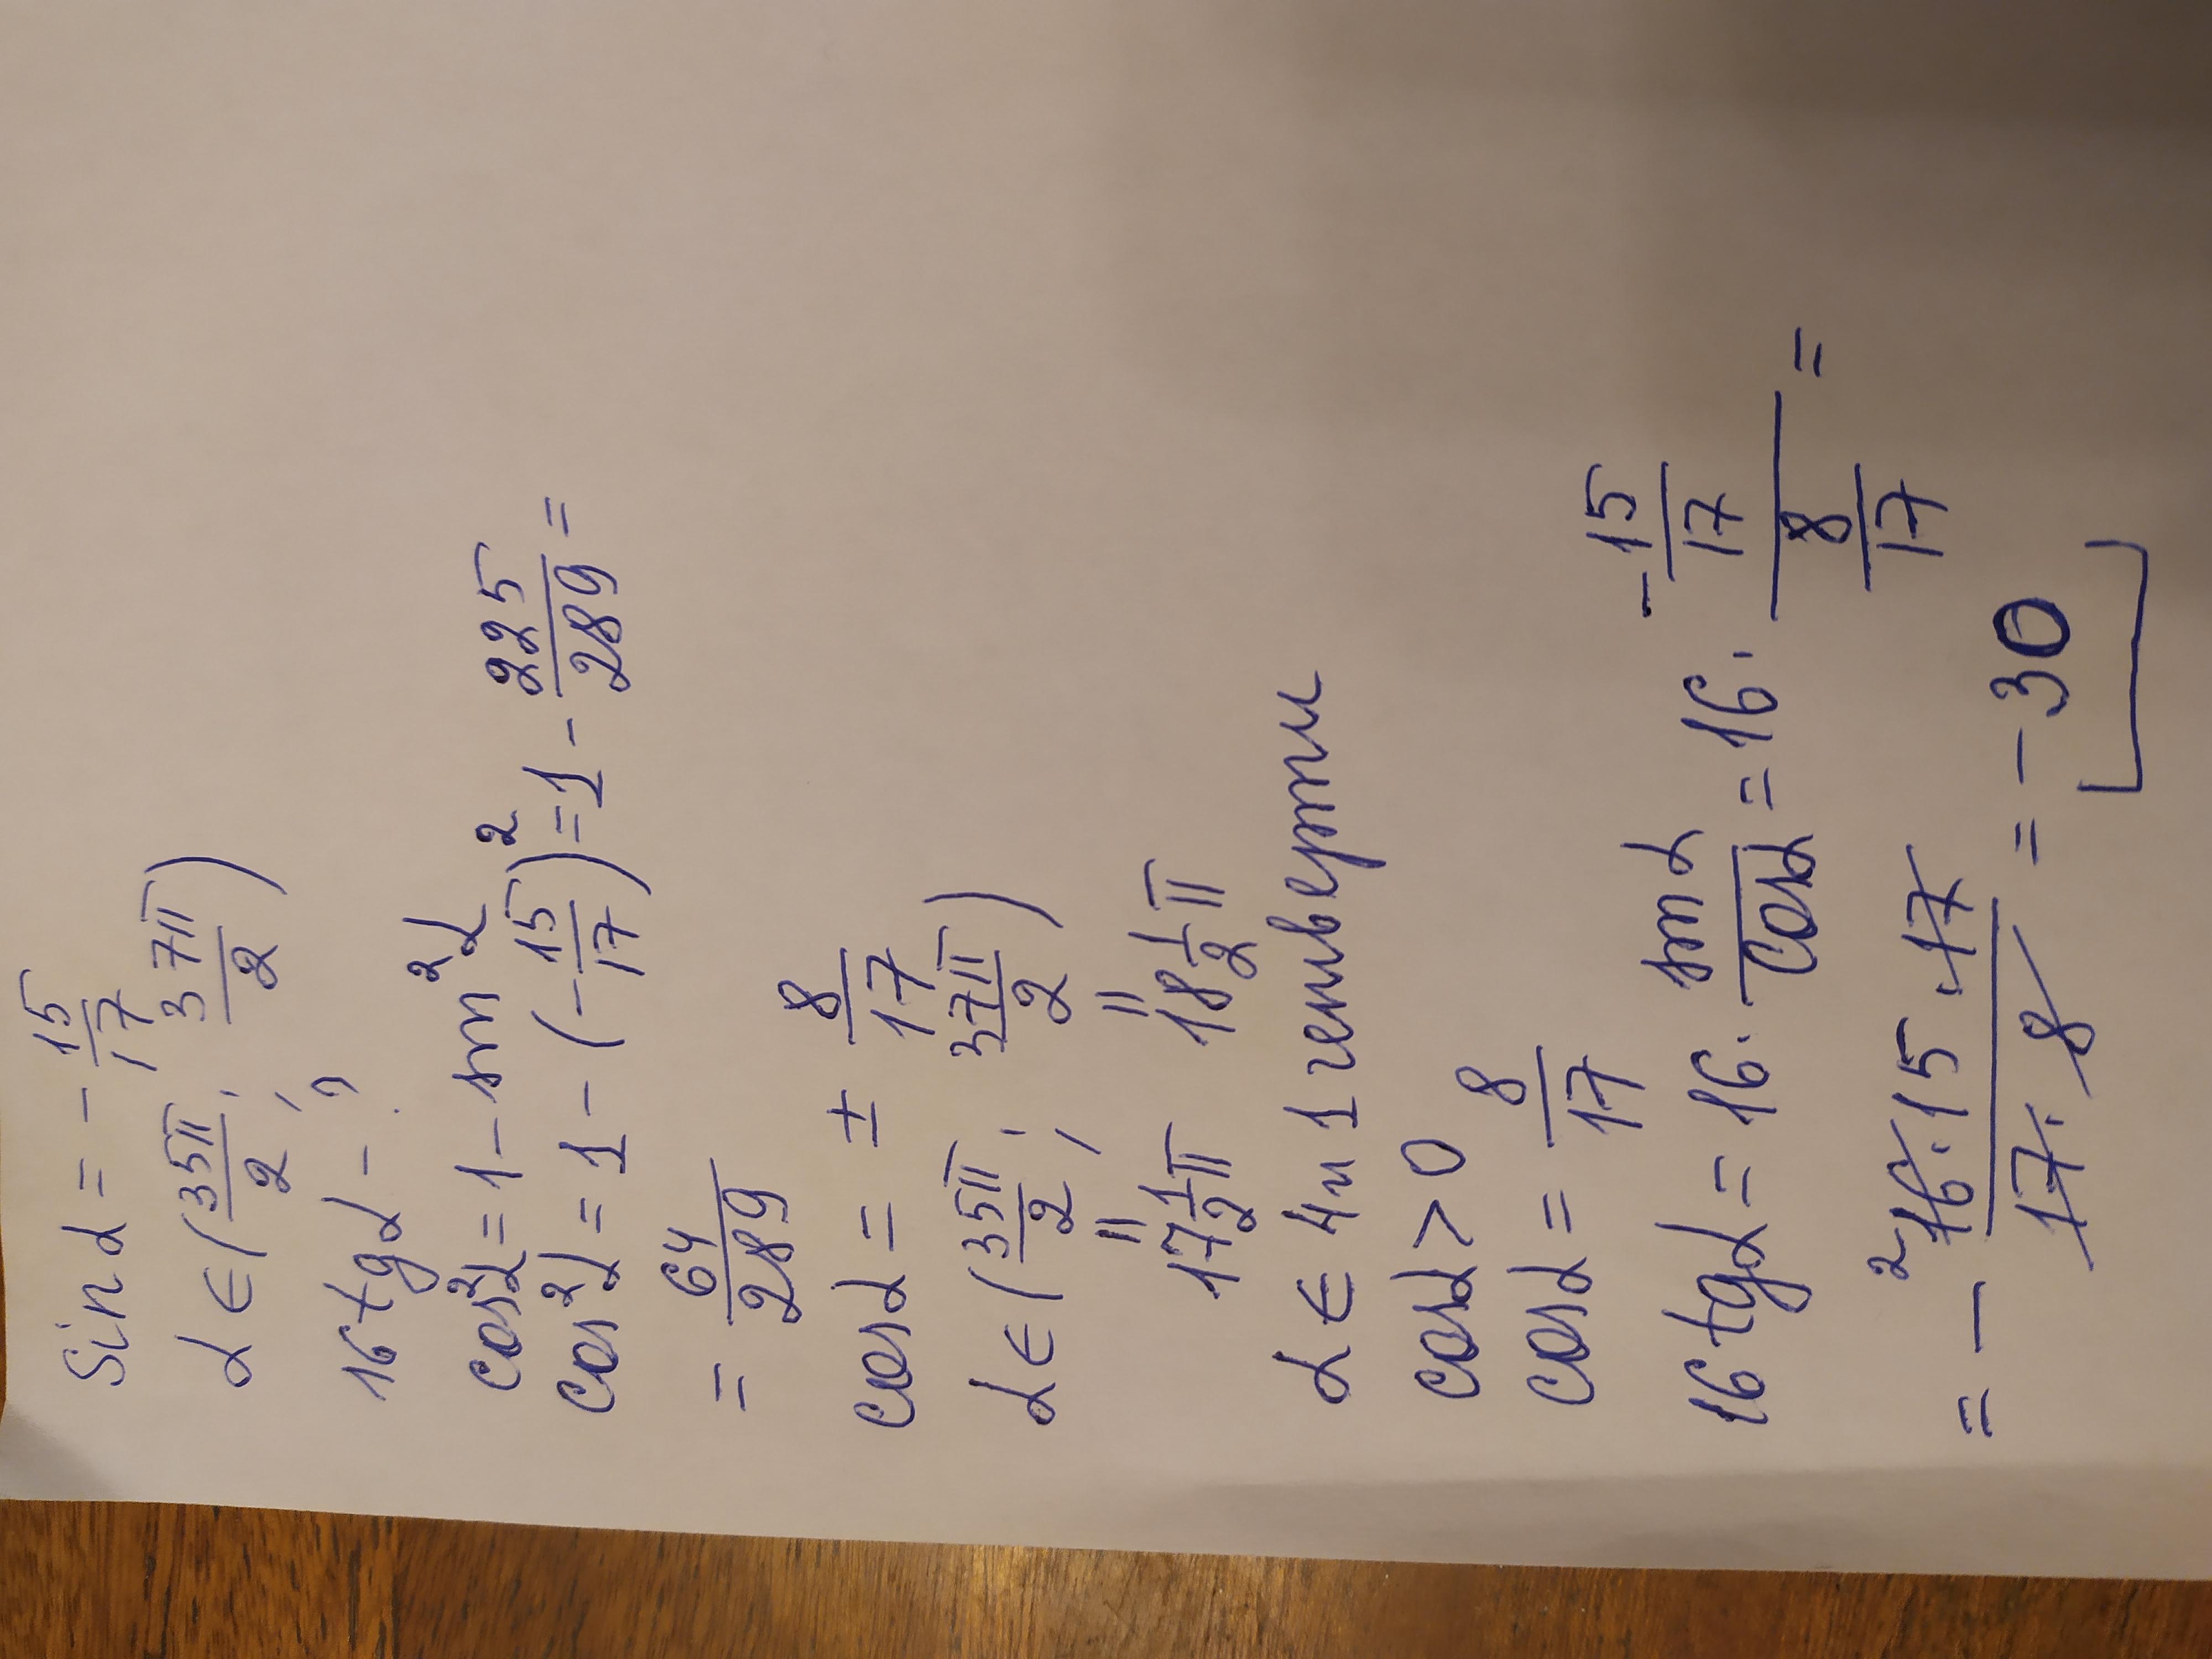 Sin α = - 15/17
α ∈ (35π/2; 37π/2)
16 tg α - ?
cos²α = 1 - sin²α
cos²α = 1 - (-15/17)² = 1 - 225/289 =
= 64/289
cos α = ± 8/17
α ∈ (35π/2; 37π/2)
" "
17 1/2 π 18 1/2 π
α ∈ 4 и 1 четверти
cos α > 0
cos α = 8/17
16 tg α = 16 · sin α/cos α = 16 · (-15/17)/(8/17) =
= - 2 16 · 15 · 17/17 · 8 = - 30